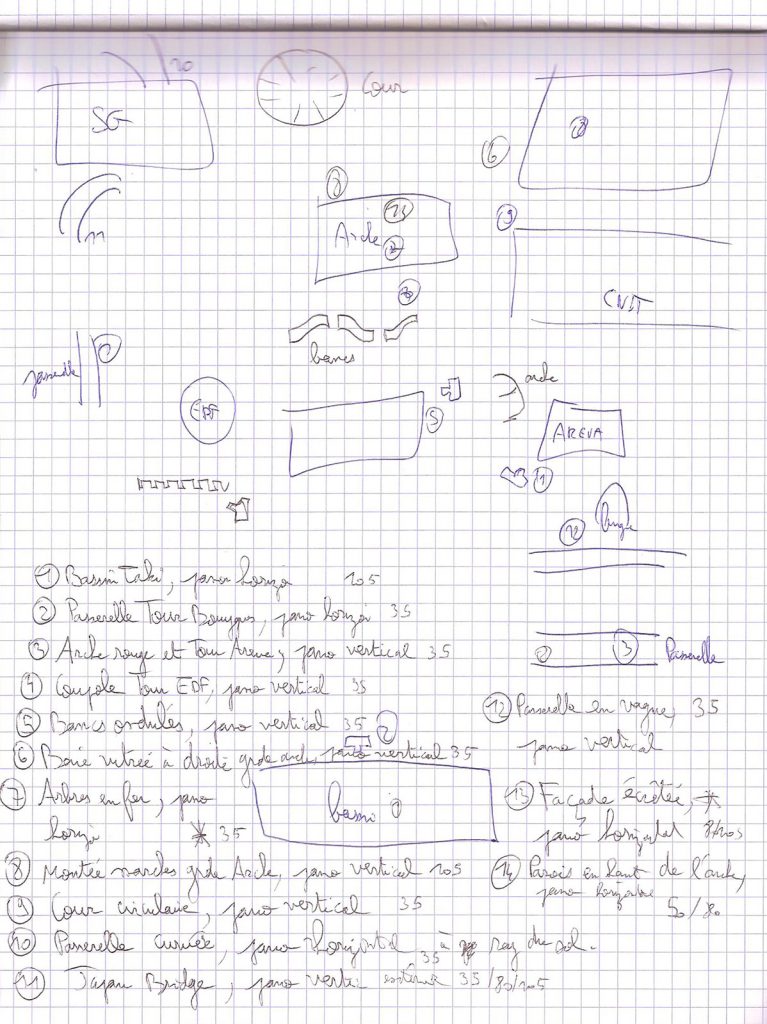 SG
Cour
6
Arche
9
CNIT
bancs
passerelle
EDF
5
arche
AREVA
1
12
3 Passerelle
1 Bassin Taki, pano horizo 105
2 Passerelle Tour Bouygues, pano horizo 35
3 Arche rouge et Tour Areva, pano vertical 35
4 Coupole Tour EDF, pano vertical 35
5 Bancs ondulés, pano vertical 35
2
6 Baie vitrée à droite grde arche, pano vertical 35
7 Arbres en fer, pano
horizo * 35
bassin
8 Montée marches grde Arche, pano vertical 105
9 Cour circulaire, pano vertical 35
10 Passerelle curvée, pano horizontal 35 à ray du sol.
11 Japan Bridge, pano verti extérieur 35/80/105
12 Passerelle en vague, 35
pano vertical
13 Façade écrêtée, *
pano horizontal 8/105
14 Parois en haut de l'arche,
pano horizontal
50/80